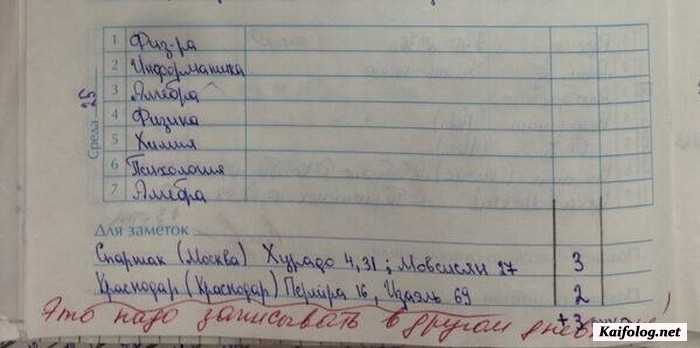 Среда 25
1 Физ-ра
2 Информатика
3 Алгебра
4 Физика
5 Химия
6 Психология
7 Алгебра
Для заметок
Спартак (Москва) Хурадо 4,31; Мовсисян 27 3
Краснодар (Краснодар) Перейра 16, Изаэль 69 2
+3
Это надо записывать в другом
Kaifolog.net